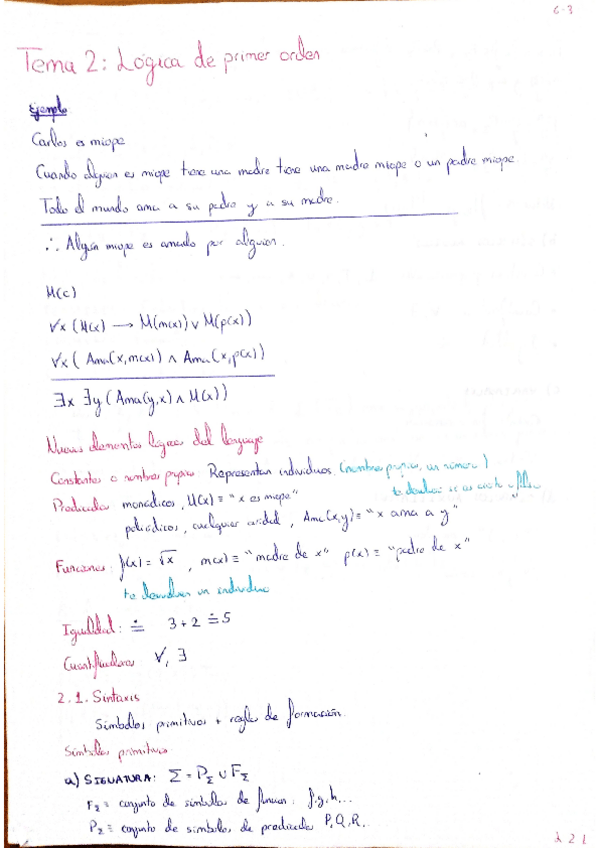 6-3
Tema 2: Lógica de primer orden
Ejemplo
Carlos es miope
Cuando alguien es miope tiene una madre tiene una madre miope o un padre miope
Todo el mundo ama a su padre y a su madre.
∴ Algún miope es amado por alguien.
M(c)
∀x (M(x) → M(m(x)) ∨ M(p(x))
∀x ( Ama(x,m(x)) ∧ Ama(x,p(x))
∃x ∃y (Ama(y,x) ∧ M(x))
Nuevos elementos lógicos del lenguaje
Constantes o nombres propios. Representan individuos. (nombres propios, un número)
Predicados monádicos, M(x) = "x es miope" te devuelven si es cierto o falso
poliádicos, cualquier aridad, Ama(x,y) = "x ama a y"
Funciones: f(x) = √x , m(x) ≡ "madre de x" p(x) ≡ "padre de x"
te devuelven un individuo
Igualdad: ≐ 3+2 ≐ 5
Cuantificadores ∀, ∃
2.1. Sintaxis
Símbolos primitivos + reglas de formación.
Símbolos primitivos
a) SIGNATURA: Σ = P_Σ ∪ F_Σ
F_Σ ≡ conjunto de símbolos de funciones. f,g,h,...
P_Σ ≡ conjunto de símbolos de predicados P,Q,R,..